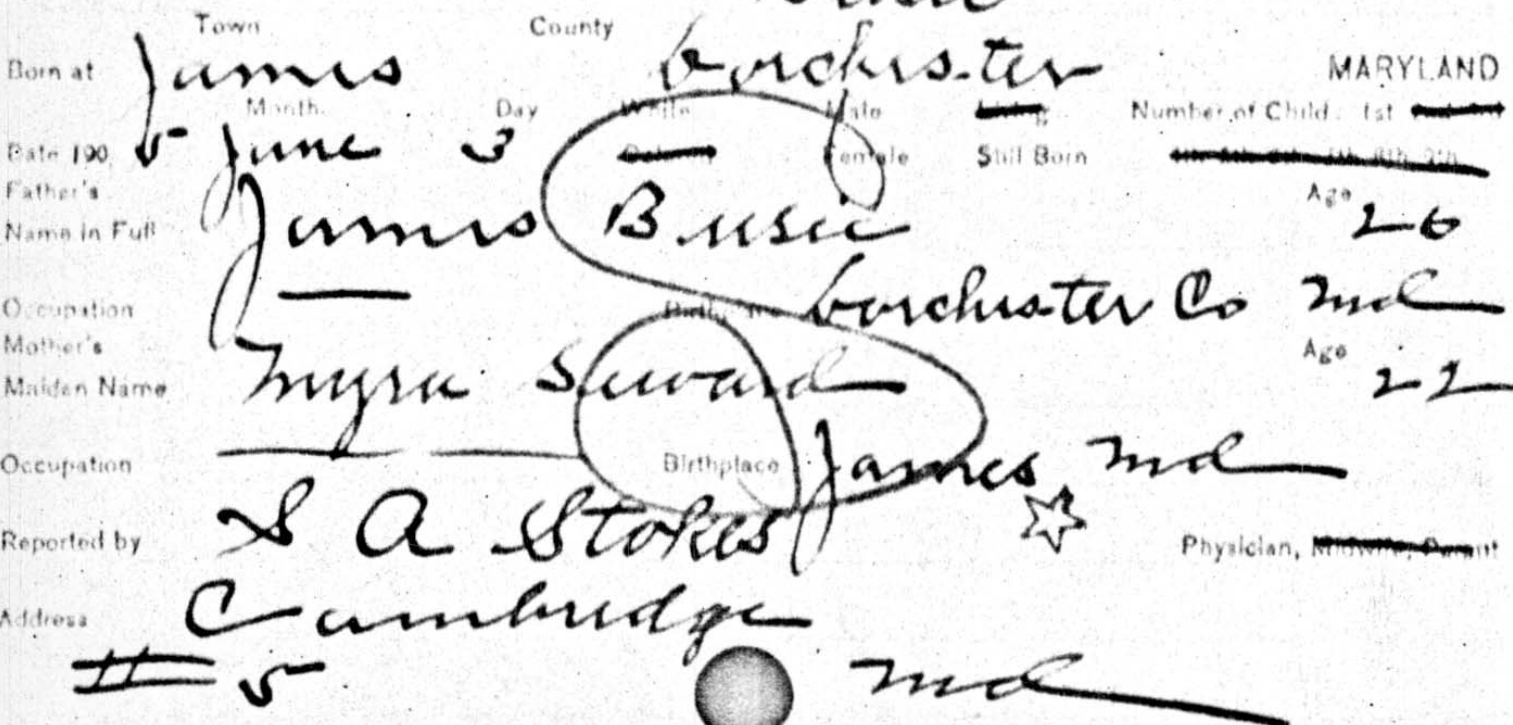 Town County
Born at James Dorchester MARYLAND
Month Day White Male Living Number of Child: 1st
Date 190 5 June 3 Colored Female Still Born
Father's Age
Name in Full James Busic 26
Occupation — Birthplace Dorchester Co Md
Mother's Age
Maiden Name Myra Seward 22
Occupation — Birthplace James Md
Reported by S A Stokes Physician, Midwife, Parent
Address Cambridge
# 5 Md